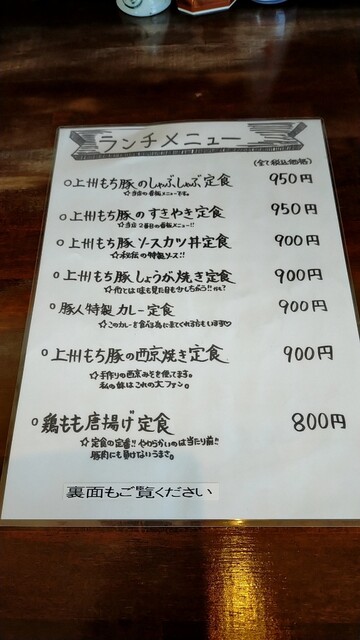 ランチメニュー
(全て税込価格)
○上州もち豚のしゃぶしゃぶ定食 950円
☆当店の看板メニューです。
○上州もち豚のすきやき定食 950円
☆当店2番目の看板メニュー!!
○上州もち豚ソースカツ丼定食 900円
☆秘伝の特製ソース!!
○上州もち豚しょうが焼き定食 900円
○豚人特製カレー定食 900円
☆このカレーを食べる為に来てくれる方もいます♡
○上州もち豚の西京焼き定食 900円
☆手作りの西京みそを使ってます。
私の妹はこれの大ファン。
○鶏もも唐揚げ定食 800円
☆定食の定番!!やわらかいのは当たり前!!
豚肉にも負けないうまさ。
裏面もご覧ください